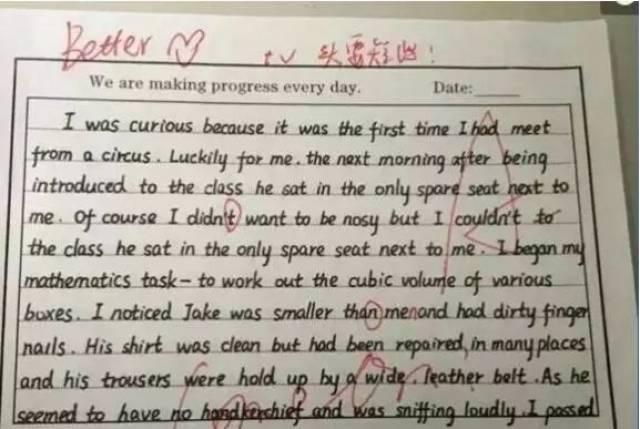 Better
tv 头要短些!
We are making progress every day. Date:
I was curious because it was the first time I had meet
from a circus. Luckily for me. the next morning after being
introduced to the class he sat in the only spare seat next to
me. Of course I didn't want to be nosy but I couldn't to
the class he sat in the only spare seat next to me. I began my
mathematics task - to work out the cubic volume of various
boxes. I noticed Jake was smaller than menand had dirty finger
nails. His shirt was clean but had been repaired, in many places
and his trousers were hold up by a wide. leather belt. As he
seemed to have no handkerchief and was sniffing loudly. I passed